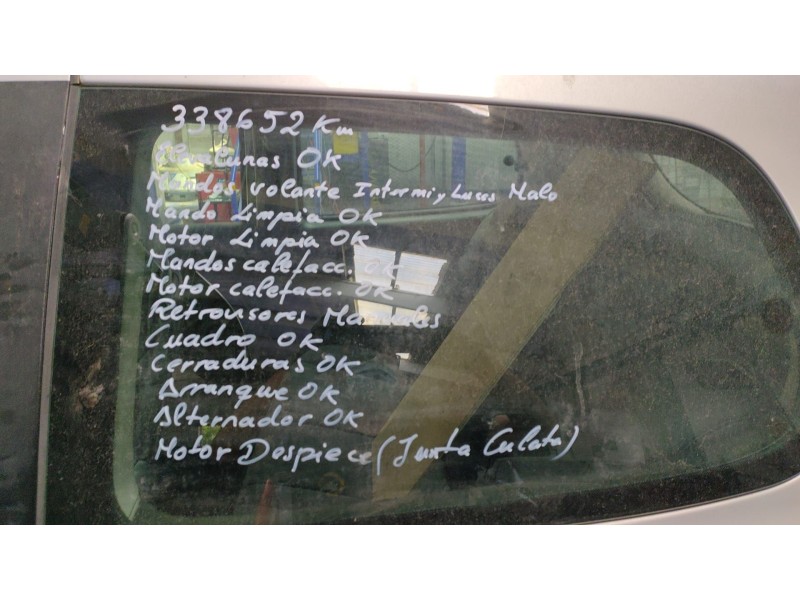 338652 Km
Elevalunas OK
Mandos volante Intermi y Luces Malo
Mando Limpia OK
Motor Limpia OK
Mandos calefacc. OK
Motor calefacc. OK
Retrovisores Manuales
Cuadro OK
Cerraduras OK
Arranque OK
Alternador OK
Motor Despiece (Junta Culata)